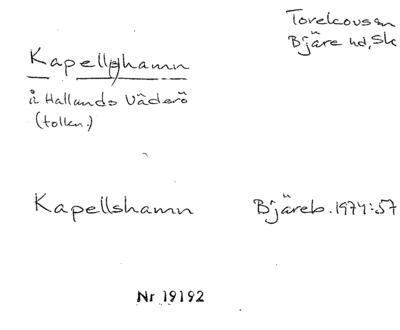 Torekovs sn
Bjäre hd, Sk
Kapellshamn
å Hallands Väderö
(tolkn.)
Kapellshamn Bjäreb. 1974:57
Nr 19192